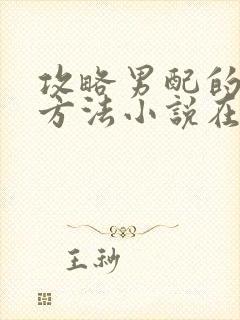 攻略男配的
方法小說在
王秒